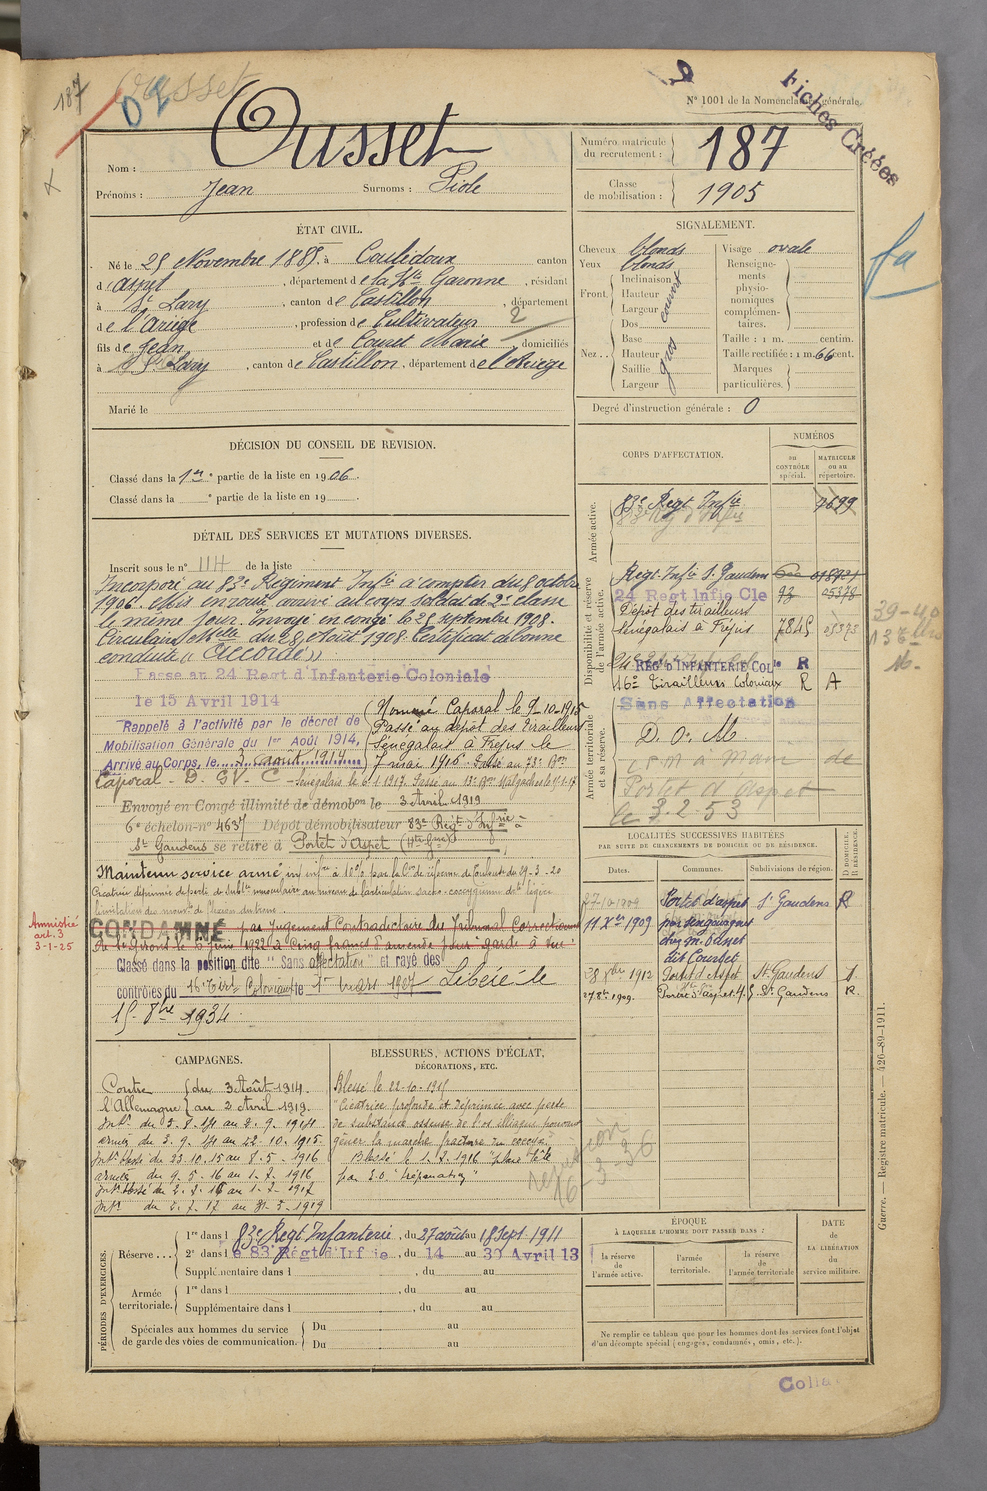 187
Ousset
N° 1001 de la Nomenclature générale.
Fiches Créées
Nom :
Ousset
Prénoms : Jean Surnoms : Piole
Numéro matricule du recrutement : 187
Classe de mobilisation : 1905
ÉTAT CIVIL.
Né le 25 Novembre 1885 à Couledoux canton
d'Aspet, département de la Hte Garonne, résidant
à St Lary, canton de Castillon, département
de l'Ariège, profession de Cultivateur 2
fils de Jean et de Couret Marie domiciliés
à St Lary, canton de Castillon, département de l'Ariège
Marié le
SIGNALEMENT.
Cheveux blonds
Yeux blonds
Front. Inclinaison Hauteur Largeur couvert
Dos
Nez Base Hauteur Saillie Largeur gros
Visage ovale
Renseignements physionomiques complémentaires.
Taille : 1 m. centim.
Taille rectifiée : 1 m. 66 cent.
Marques particulières.
Degré d'instruction générale : 0
DÉCISION DU CONSEIL DE REVISION.
Classé dans la 1re partie de la liste en 1906.
Classé dans la ° partie de la liste en 19
DÉTAIL DES SERVICES ET MUTATIONS DIVERSES.
Inscrit sous le n° 114 de la liste
Incorporé au 83e Régiment Infie à compter du 8 octobre
1906. Mis en route, arrivé au corps soldat de 2e classe
le même jour. Envoyé en congé le 25 septembre 1908.
Circulaire Mtelle du 28 Août 1908. Certificat de bonne
conduite "Accordé"
Passé au 24 Regt d'Infanterie Coloniale
le 15 Avril 1914
Rappelé à l'activité par le décret de
Mobilisation Générale du 1er Août 1914,
Arrivé au Corps, le 3 août 1914
Nommé Caporal le 9-10-1915
Passé au dépôt des Tirailleurs
Sénégalais à Fréjus le
7 mai 1916. Passé au 73e Bon
Caporal - D. GV. C - Sénégalais le 6-1-1917. Passé au 13e Bon Malgaches le
Envoyé en Congé illimité de démobon le 3 Avril 1919
6e échelon n° 4637 Dépôt démobilisateur 83e Régt d'Infrie à
St Gaudens se retire à Portet d'Aspet (Hte Gne)
Maintenu service armé, inv inf re à 10% par la Con de réforme de Toulouse du 29-3-20
Cicatrice déprimée de perte de substce musculaire au niveau de l'articulation sacro-coccygienne dte légère
limitation des mouvts de flexion du tronc.
Amnistié art. 3 3-1-25
CONDAMNÉ par Jugement Contradictoire du Tribunal Correctionnel
de St Girons le 6 Juin 1922 à Cinq francs d'amende pour "garde à vue"
Classé dans la position dite "Sans affectation" et rayé des
contrôles du 16e Tirt Coloniaux le 1er mars 1927 Libéré le
15 8bre 1934.
CORPS D'AFFECTATION.
NUMÉROS
au CONTRÔLE spécial.
MATRICULE ou au répertoire.
Armée active.
83e Regt Infie 7699
Disponibilité et réserve de l'armée active.
Regt Infie St Gaudens
24 Regt Infie Cle 93 05378
Dépôt des tirailleurs
Sénégalais à Fréjus 7845 05373
REGt D'INFANTERIE COLle R
16e Tirailleurs Coloniaux R A
Sans Affectation
39-40
Armée territoriale et sa réserve.
D. O. M.
Portet d'Aspet
le 3.2.53
LOCALITÉS SUCCESSIVES HABITÉES
PAR SUITE DE CHANGEMENTS DE DOMICILE OU DE RÉSIDENCE.
Dates. Communes. Subdivisions de région. D DOMICILE. R RÉSIDENCE.
27-10-1909 Portet d'aspet St Gaudens R
11 Xbre 1909 par
chez M. Ousset
dit Courbet
28 8bre 1912 Portet d'Aspet St Gaudens
27 8bre 1909. Portet d'aspet. H. G. St Gaudens R.
CAMPAGNES.
Contre l'Allemagne { du 3 Août 1914.
au 2 Avril 1919.
Intr du 3. 8. 14 au 2. 9. 1914
armées du 3. 9. 14 au 22. 10. 1915
Intr blessé du 23. 10. 15 au 8. 5. 1916
armées du 9. 5. 16 au 1. 7. 1916
Intr blessé du 2. 7. 16 au 1. 7. 1917
Intr du 2. 7. 17 au 31. 3. 1919
BLESSURES, ACTIONS D'ÉCLAT, DÉCORATIONS, ETC.
Blessé le 22-10-1915
"Cicatrice profonde et déprimée avec perte
de substance osseuse de l'os illiaque pouvant
gêner la marche fracture du coccyx."
Blessé le 1-7-1916 "plaie tête
par E.O. trépanation"
16-3-36
PÉRIODES D'EXERCICES.
Réserve... 1re dans l 83e Regt Infanterie, du 27 août au 18 Sept. 1911
2e dans l e 83 Régt d'Infie, du 14 au 30 Avril 13
Supplémentaire dans l , du au
Armée territoriale. 1re dans l , du au
Supplémentaire dans l , du au
Spéciales aux hommes du service de garde des voies de communication. Du au
Du au
ÉPOQUE
À LAQUELLE L'HOMME DOIT PASSER DANS :
la réserve de l'armée active.
l'armée territoriale.
la réserve de l'armée territoriale
DATE de LA LIBÉRATION du service militaire.
Ne remplir ce tableau que pour les hommes dont les services font l'objet
d'un décompte spécial (engagés, condamnés, omis, etc.).
Guerre. — Registre matricule. — 426-89-1911.